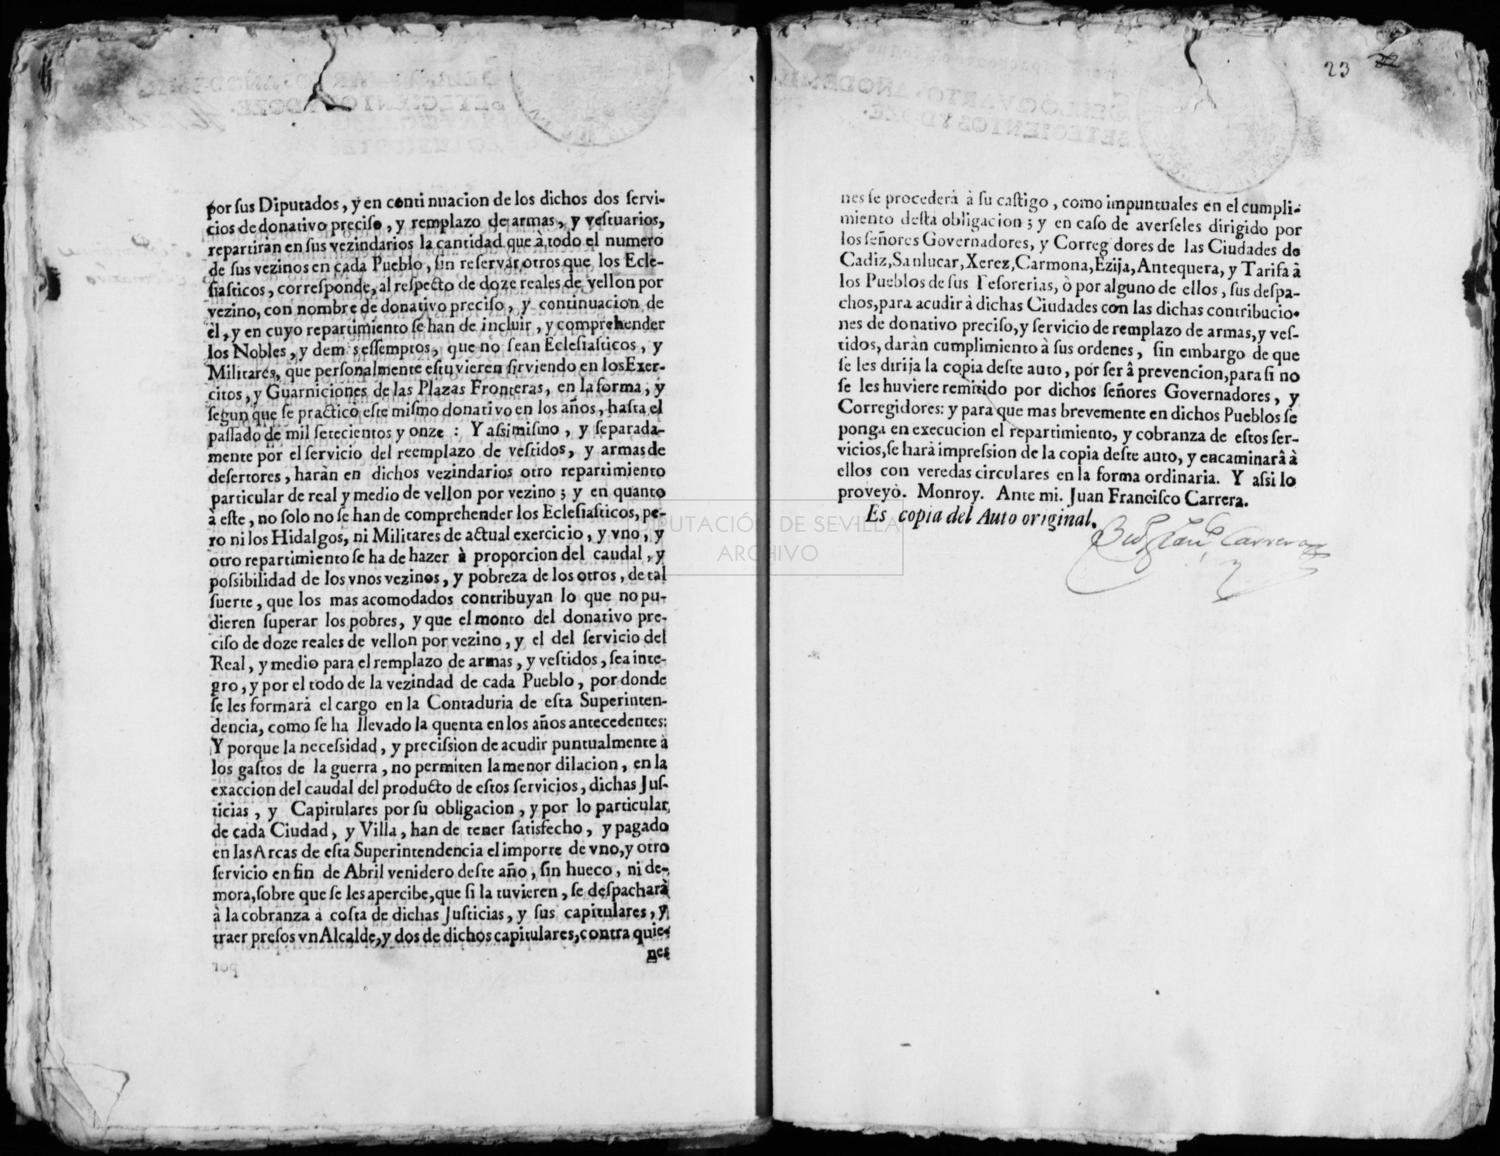 por sus Diputados, y en continuacion de los dichos dos servi-
cios de donativo preciso, y remplazo de armas, y vestuarios,
repartiràn en sus vezindarios la cantidad que à todo el numero
de sus vezinos en cada Pueblo, sin reservar otros que los Ecle-
siasticos, corresponde, al respecto de doze reales de vellon por
vezino, con nombre de donativo preciso, y continuacion de
èl, y en cuyo repartimiento se han de incluir, y comprehender
los Nobles, y demàs essemptos, que no sean Eclesiasticos, y
Militares, que personalmente estuvieren sirviendo en los Exer-
citos, y Guarniciones de las Plazas Fronteras, en la forma, y
segun que se practicò este mismo donativo en los años, hasta el
passado de mil setecientos y onze : Y assimismo, y separada-
mente por el servicio del reemplazo de vestidos, y armas de
desertores, haràn en dichos vezindarios otro repartimiento
particular de real y medio de vellon por vezino ; y en quanto
à este, no solo no se han de comprehender los Eclesiasticos, pe-
ro ni los Hidalgos, ni Militares de actual exercicio, y vno, y
otro repartimiento se ha de hazer à proporcion del caudal, y
possibilidad de los vnos vezinos, y pobreza de los otros, de tal
suerte, que los mas acomodados contribuyan lo que no pu-
dieren superar los pobres, y que el monto del donativo pre-
ciso de doze reales de vellon por vezino, y el del servicio del
Real, y medio para el remplazo de armas, y vestidos, sea inte-
gro, y por el todo de la vezindad de cada Pueblo, por donde
se les formarà el cargo en la Contaduria de esta Superinten-
dencia, como se ha llevado la quenta en los años antecedentes:
Y porque la necessidad, y precission de acudir puntualmente à
los gastos de la guerra, no permiten la menor dilacion, en la
exaccion del caudal del producto de estos servicios, dichas Jus-
ticias, y Capitulares por su obligacion, y por lo particular,
de cada Ciudad, y Villa, han de tener satisfecho, y pagado
en las Arcas de esta Superintendencia el importe de vno, y otro
servicio en fin de Abril venidero deste año, sin hueco, ni de-
mora, sobre que se les apercibe, que si la tuvieren, se despacharà
à la cobranza à costa de dichas Justicias, y sus capitulares, y
traer presos vn Alcalde, y dos de dichos capitulares, contra quie-
nes
23
nes se procederà à su castigo, como impuntuales en el cumpli-
miento desta obligacion ; y en caso de averseles dirigido por
los señores Governadores, y Corregidores de las Ciudades de
Cadiz, Sanlucar, Xerez, Carmona, Ezija, Antequera, y Tarifa à
los Pueblos de sus Tesorerias, ò por alguno de ellos, sus despa-
chos, para acudir à dichas Ciudades con las dichas contribucio-
nes de donativo preciso, y servicio de remplazo de armas, y ves-
tidos, daràn cumplimiento à sus ordenes, sin embargo de que
se les dirija la copia deste auto, por ser à prevencion, para si no
se les huviere remitido por dichos señores Governadores, y
Corregidores: y para que mas brevemente en dichos Pueblos se
ponga en execucion el repartimiento, y cobranza de estos ser-
vicios, se harà impression de la copia deste auto, y encaminarà à
ellos con veredas circulares en la forma ordinaria. Y assi lo
proveyò. Monroy. Ante mi. Juan Francisco Carrera.
Es copia del Auto original.
Carrera
DIPUTACIÓN DE SEVILLA
ARCHIVO